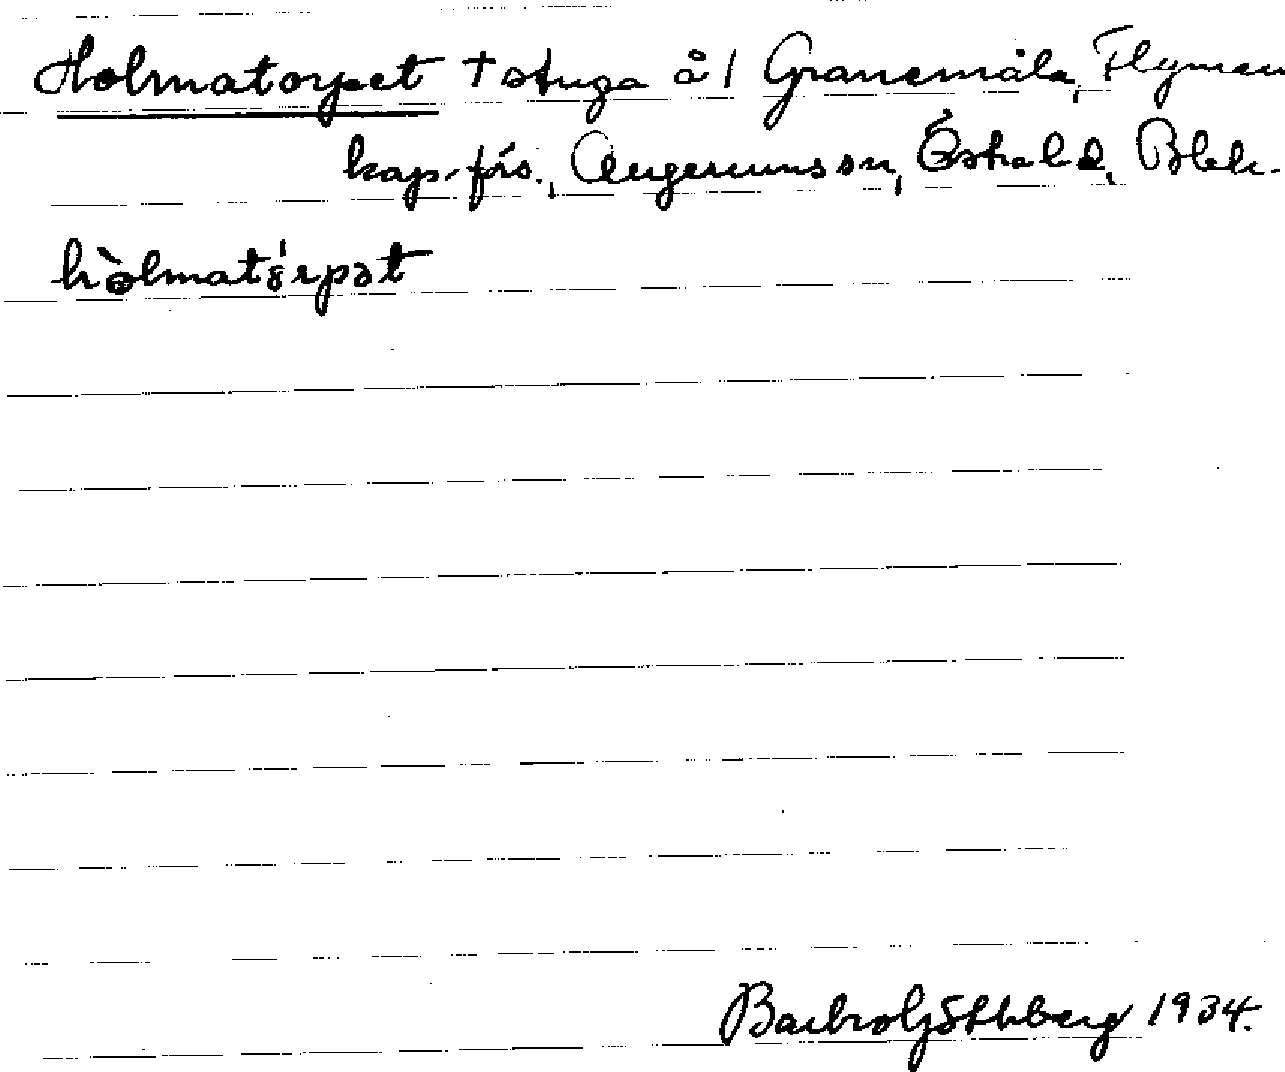 Holmatorpet † stuga å 1 Granemåla, Flymen
kap.förs., Augerums sn, Östra hd, Blek.
hòlmatórpət
Barbro Söhrberg 1934.